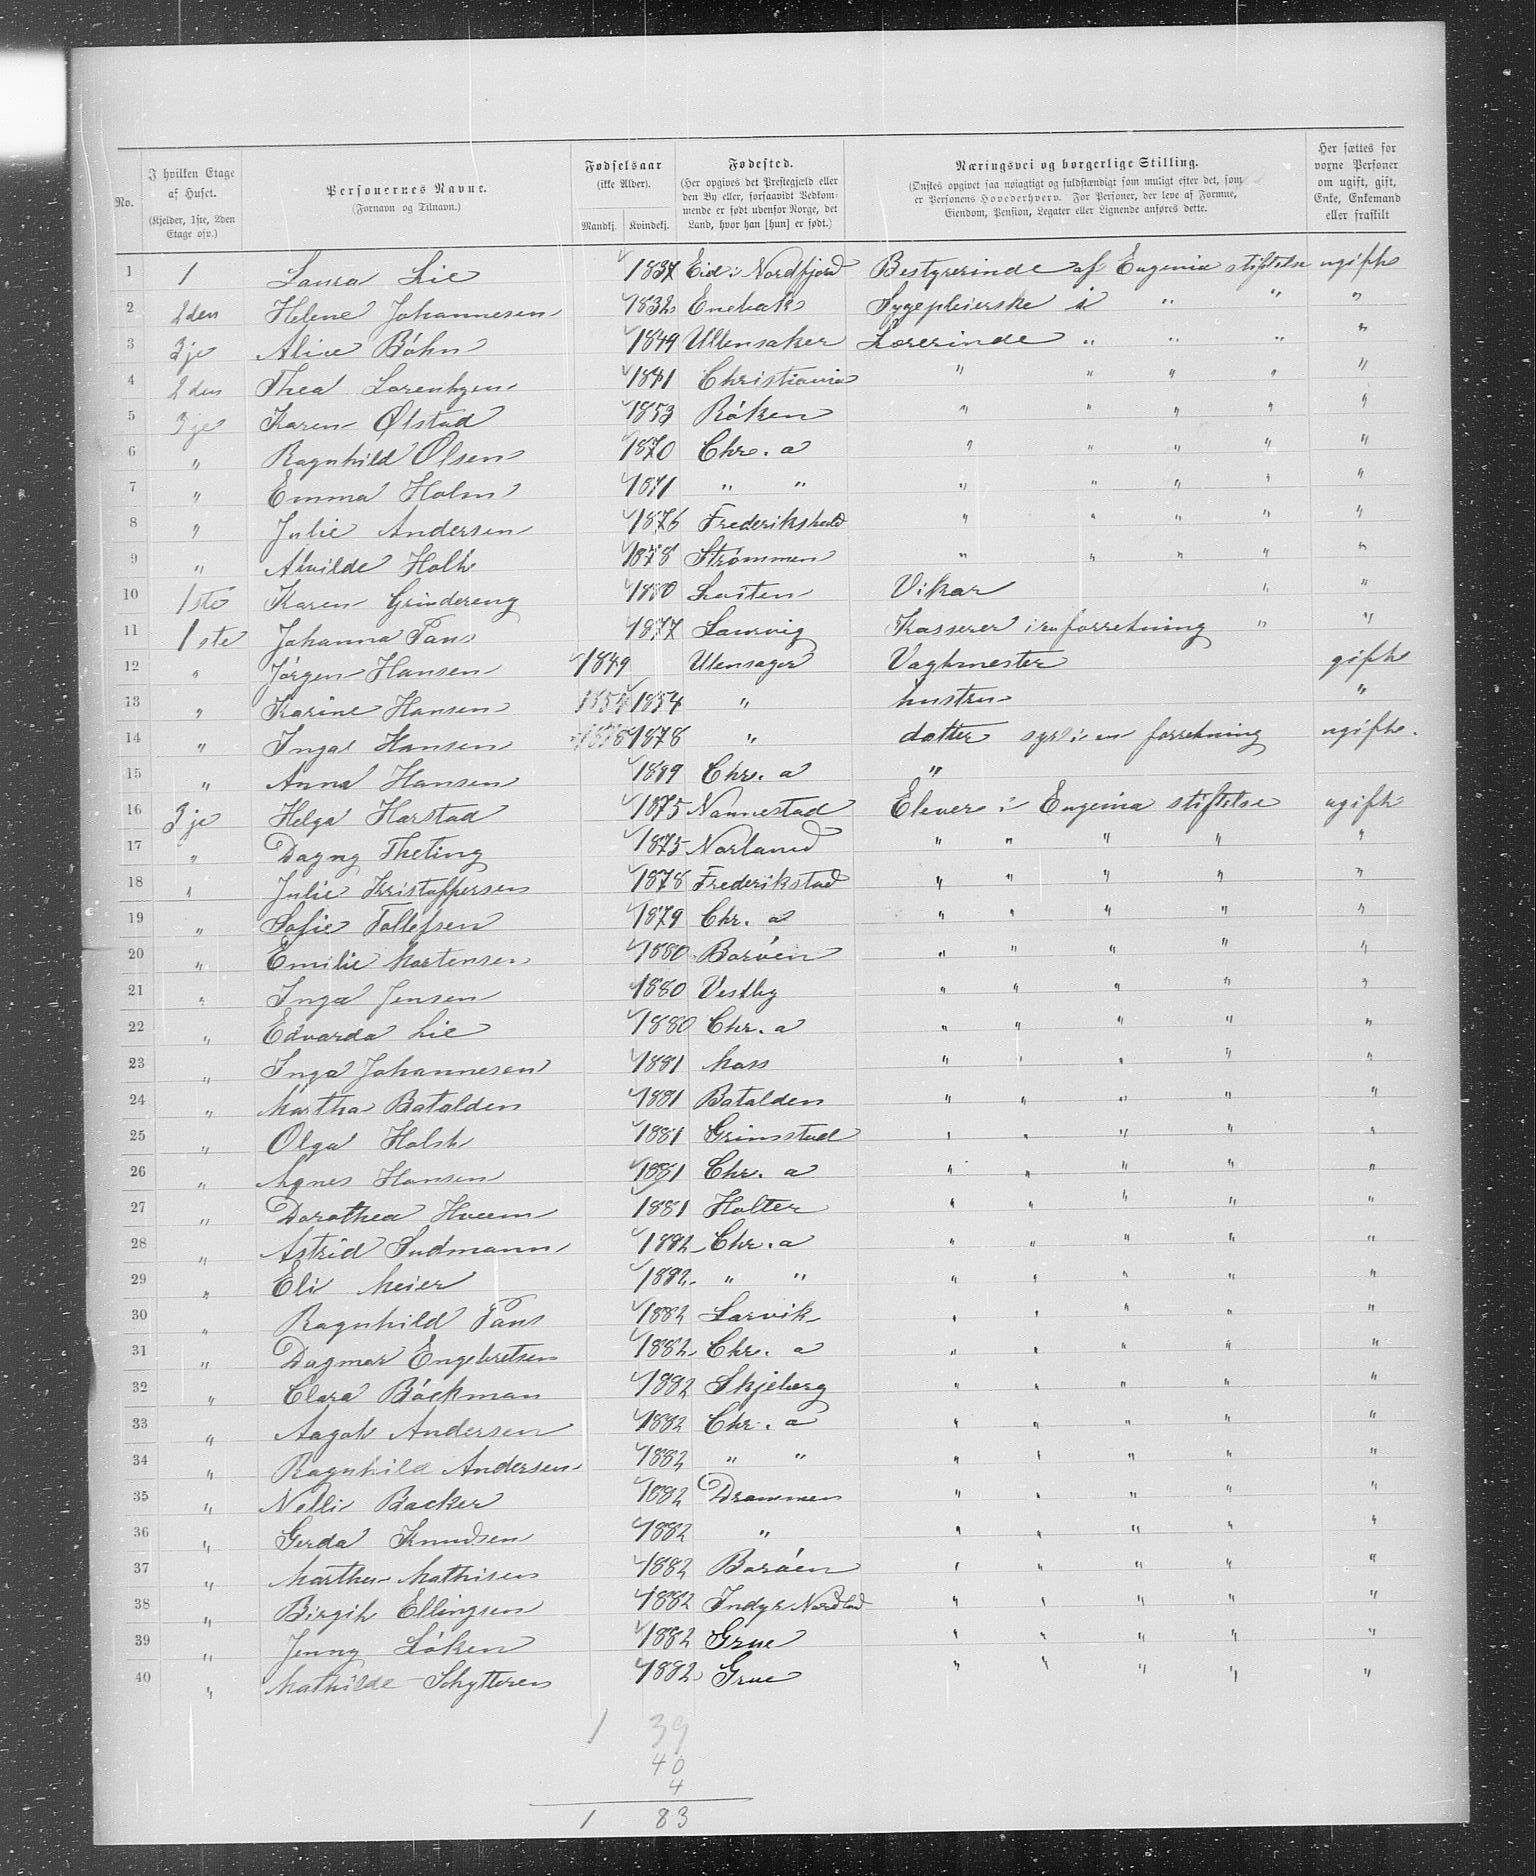 No.
I hvilken Etage af Huset. (Kjelder, 1ste, 2den Etage osv.)
Personernes Navne. (Fornavn og Tilnavn.)
Fødselsaar (ikke Alder). Mandkj. Kvindekj.
Fødested. (Her opgives det Prestegjæld eller den By eller, forsaavidt Vedkommende er født udenfor Norge, det Land, hvor han [hun] er født.)
Næringsvei og borgerlige Stilling. (Ønskes opgivet saa nøiagtigt og fuldstændigt som muligt efter det, som er Personens Hovederhverv. For Personer, der leve af Formue, Eiendom, Pension, Legater eller Lignende anføres dette.)
Her sættes for voxne Personer om ugift, gift, Enke, Enkemand eller fraskilt
1 1 Laura Lie 1837 Eid i Nordfjord Bestyrerinde af Eugenia stiftelse ugift
2 2den Helene Johannesen 1832 Enebak Sygepleierske i " " "
3 3je Alice Böhn 1849 Ullensaker Lærerinde " " " "
4 2den Thea Lorentzen 1841 Christiania " " " " "
5 3je Karen Ølstad 1853 Röken " " " " "
6 " Ragnhild Olsen 1870 Chr.a " " " " "
7 " Emma Holm 1871 " " " " " " "
8 " Julie Andersen 1876 Frederikshald " " " " "
9 " Alvilde Holt 1878 Strømmen " " " " "
10 1ste Karen Grindereng 1880 Løiten Vikar " "
11 1ste Johanna Pans 1877 Laurvig Kasserer i en forretning " "
12 " Jörgen Hansen 1849 Ulensager Vagtmester gift
13 " Karine Hansen 1854 1854 " hustru "
14 " Inga Hansen 1878 1878 " datter syr i en forretning ugift.
15 " Anna Hansen 1889 Chr.a "
16 3je Helga Harstad 1875 Nannestad Elever i Eugenia stiftelse ugift
17 " Dagny Theting 1875 Norland " " " " "
18 " Julie Kristoffersen 1878 Frederikstad " " " " "
19 " Sofie Tollefsen 1879 Chr.a " " " " "
20 " Emilie Mortensen 1880 Boröen " " " " "
21 " Inga Jensen 1880 Vestby " " " " "
22 " Edvarda Lie 1880 Chr.a " " " " "
23 " Inga Johannesen 1881 Moss " " " " "
24 " Martha Batalden 1881 Batalden " " " " "
25 " Olga Holst 1881 Grimstad " " " " "
26 " Agnes Hansen 1881 Chr.a " " " " "
27 " Dorothea Hveem 1881 Holter " " " " "
28 " Astrid Sudmann 1882 Chr.a " " " " "
29 " Eli Meier 1882 " " " " " " "
30 " Ragnhild Pans 1882 Larvik " " " " "
31 " Dagmar Engebretsen 1882 Chr.a " " " " "
32 " Clara Böckman 1882 Skjeberg " " " " "
33 " Aagot Andersen 1882 Chr.a " " " " "
34 " Ragnhild Andersen 1882 " " " " " " "
35 " Nelli Backer 1882 Drammen " " " " "
36 " Gerda Knudsen 1882 " " " " " "
37 " Martha Mathisen 1882 Boröen " " " " "
38 " Birgit Ellingsen 1882 Indyr Nordlad " " " " "
39 " Jenny Löken 1882 Grue " " " " "
40 " Mathilde Schytteren 1882 Grue " " " " "
1 39
40
4
1 83